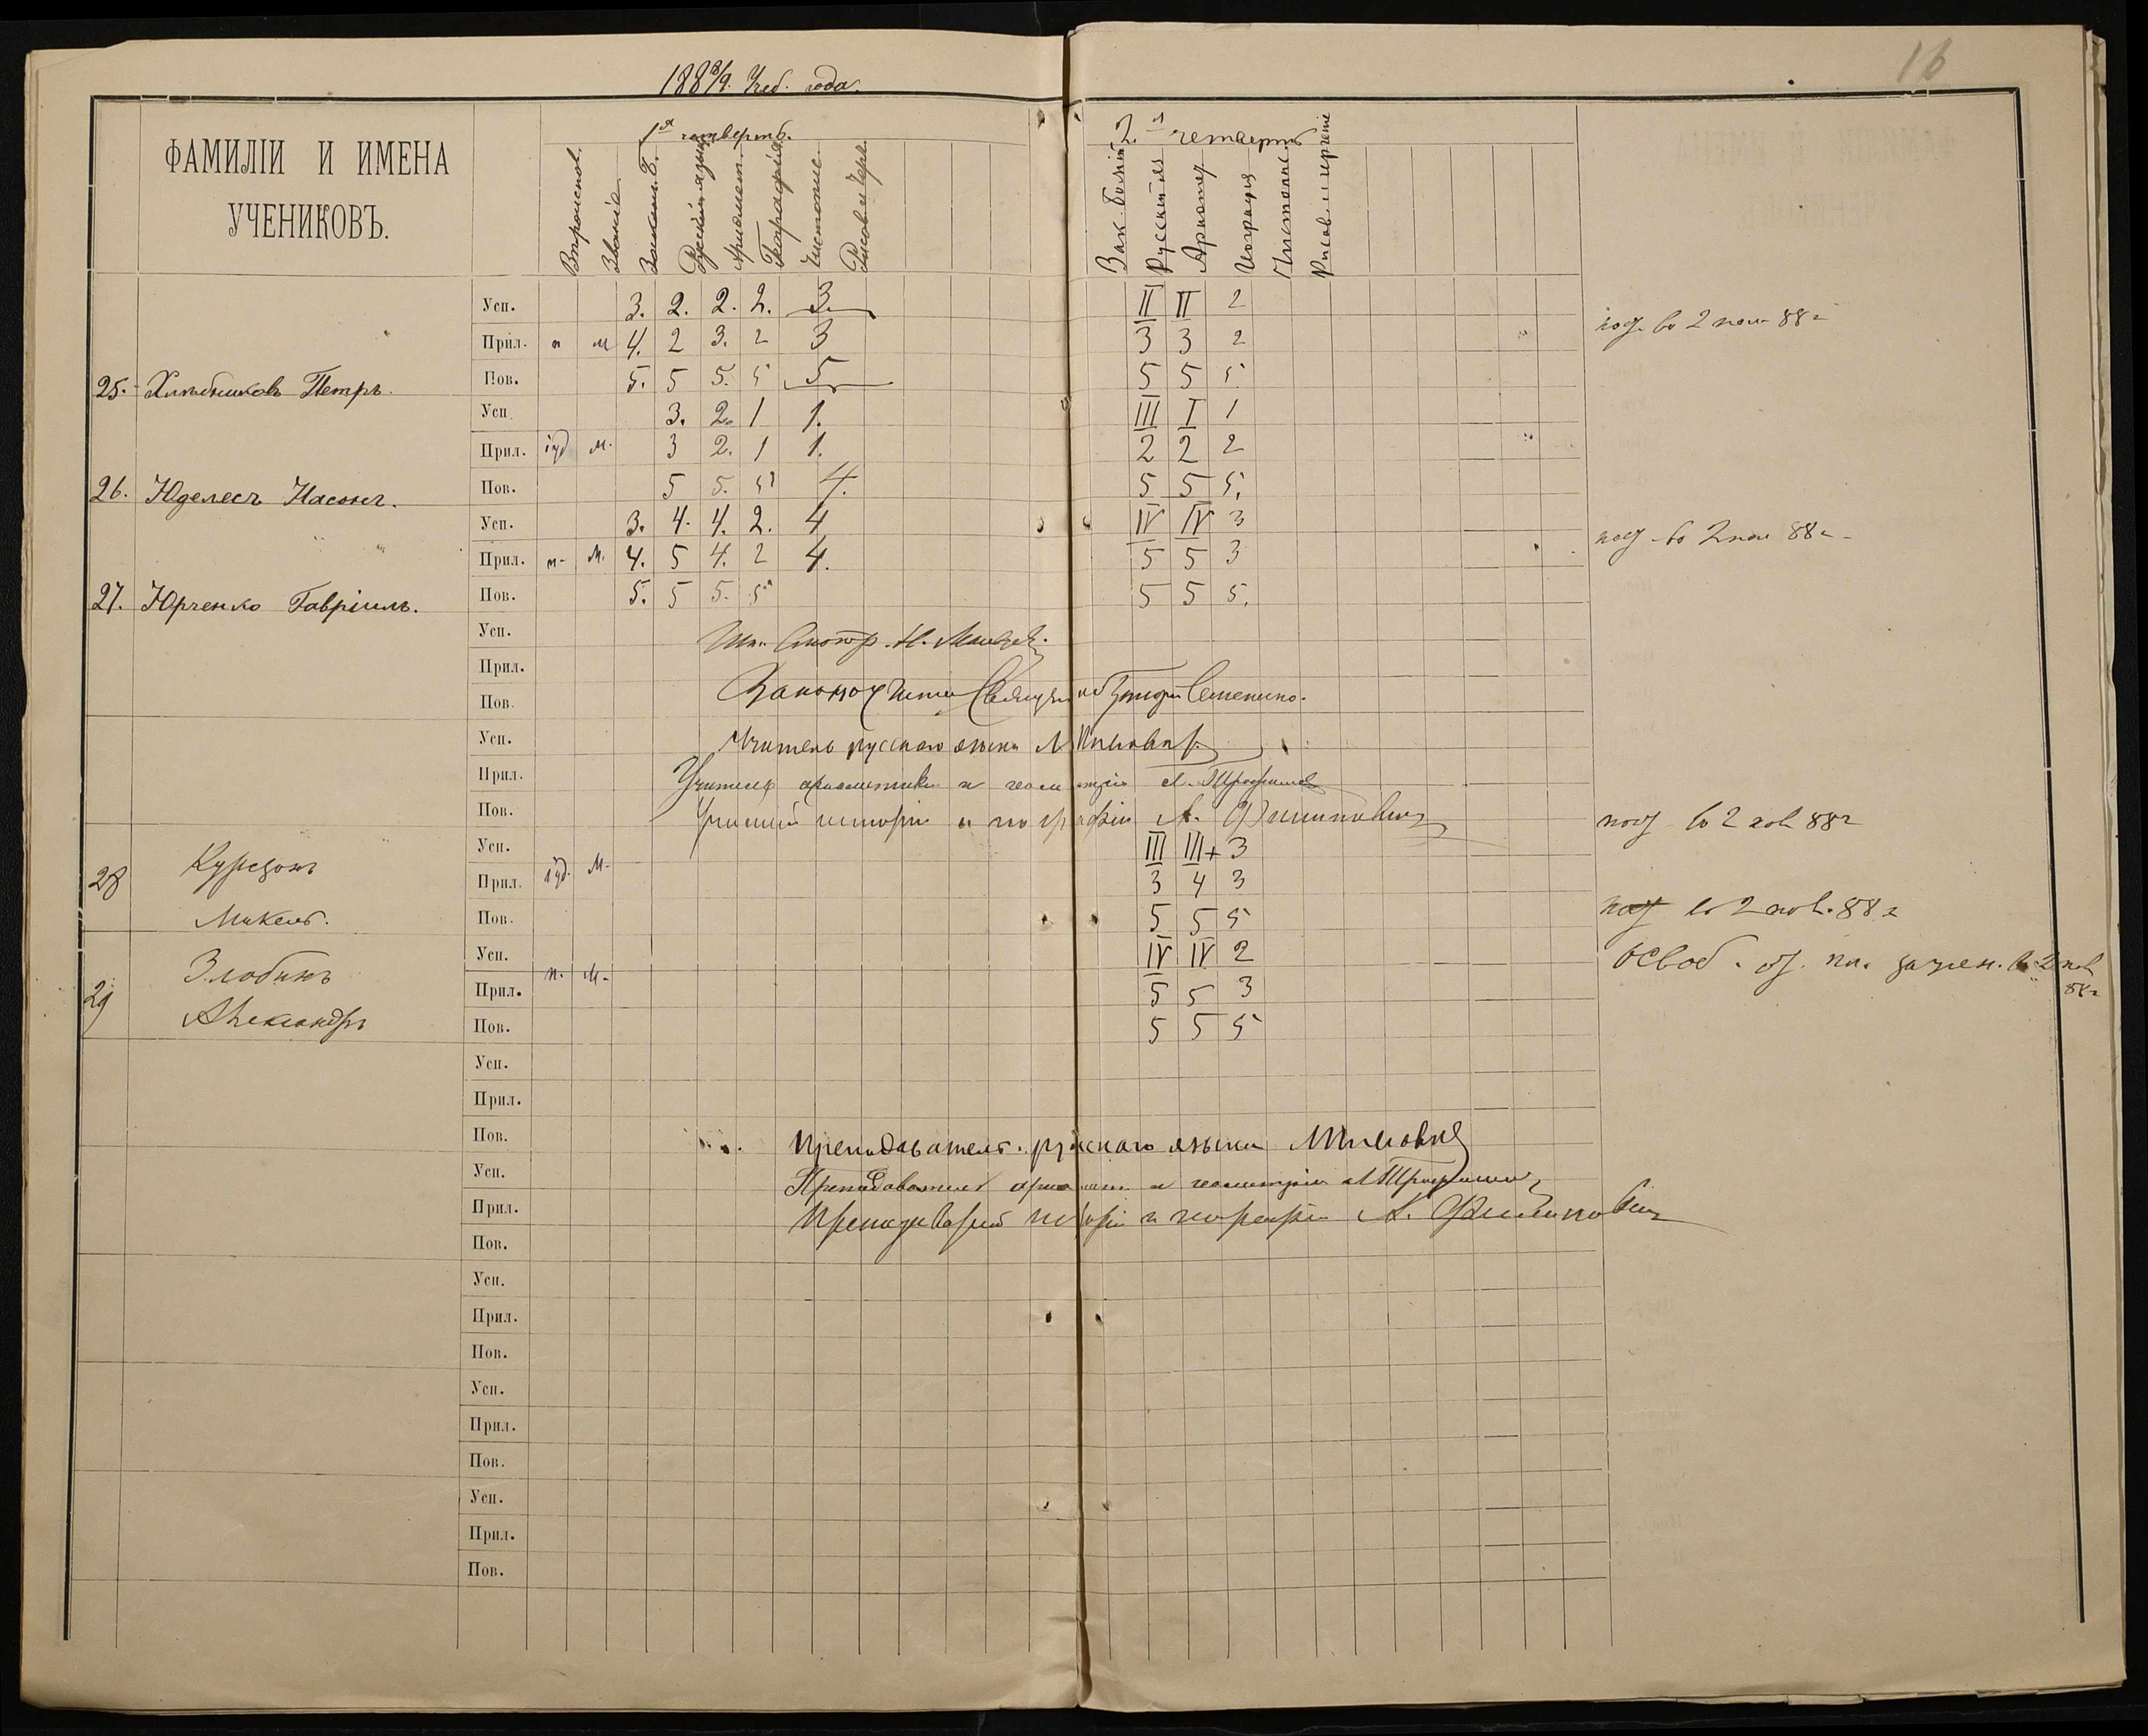 1888/9. Учеб. года.
16
ФАМИЛІИ И ИМЕНА
УЧЕНИКОВЪ.
1я четверть.
Вѣроисповѣд.
Званіе
Законъ Б.
Русскій языкъ
Ариѳмет.
Географія
Чистопис.
Рисов. и Черч.
2я четверть
Зак. Божій
Русскій яз
Ариѳмет
Географія
Чистописан.
Рисов. и черченіе
Усп. 3. 2. 2. 2. 3. II II 2
Прил. п м 4. 2 3. 2 3 3 3 2
во 2 пол 88 г
25. Хлѣбниковъ Петръ. Пов. 5. 5 5. 5 5 5 5 5
Усп. 3. 2. 1 1. III I 1
Прил. іуд м. 3 2. 1 1. 2 2 2
26. Юделесъ Насонъ. Пов. 5 5. 5 4. 5 5 5.
Усп. 3. 4. 4. 2. 4 IV IV 3
Прил. п. м. 4. 5 4. 2 4. 5 5 3
во 2 пол 88 г
27. Юрченко Гавріилъ. Пов. 5. 5 5. 5 5 5 5.
Усп. Шт. Смотр. Н.
Прил.
Пов. Законоучитель Священникъ Семененко.
Усп. Учитель русскаго языка
Прил. Учитель ариѳметики и геометріи
Пов. Учитель исторіи и географіи А. Филипповичъ
во 2 пол 88 г
Усп. III III+ 3
28 Прил. іуд. м. 3 4 3
Микель. Пов. 5 5 5
во 2 пол. 88 г
Усп. IV IV 2
Злобинъ
освоб. от. пл. за учен. во 2 пол
88 г
29 Прил. п. м. 5 5 3
Александръ Пов. 5 5 5
Усп.
Прил.
Пов. Преподаватель русскаго языка
Усп. Преподаватель ариѳмет. и геометріи
Прил. Преподаватель исторіи и географіи А. Филипповичъ
Пов.
Усп.
Прил.
Пов.
Усп.
Прил.
Пов.
Усп.
Прил.
Пов.